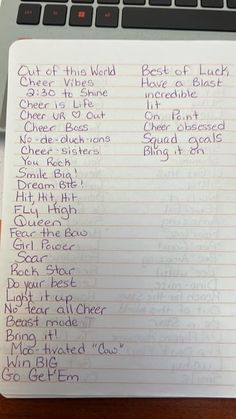 Out of this World
Cheer Vibes
2:30 to Shine
Cheer is Life
Cheer UR ♡ Out
Cheer Boss
No-de-duck-ions
Cheer-sisters
You Rock
Smile Big!
Dream BIG!
Hit, Hit, Hit
FLy High
Queen
Fear the Bow
Girl Power
Soar
Rock Star
Do your best
Light it up
No fear all Cheer
Beast mode
Bring it!
Moo-tivated "Cow"
Win BIG
Go Get'Em
Best of Luck
Have a Blast
incredible
lit
On Point
Cheer obsessed
Squad goals
Bling it on